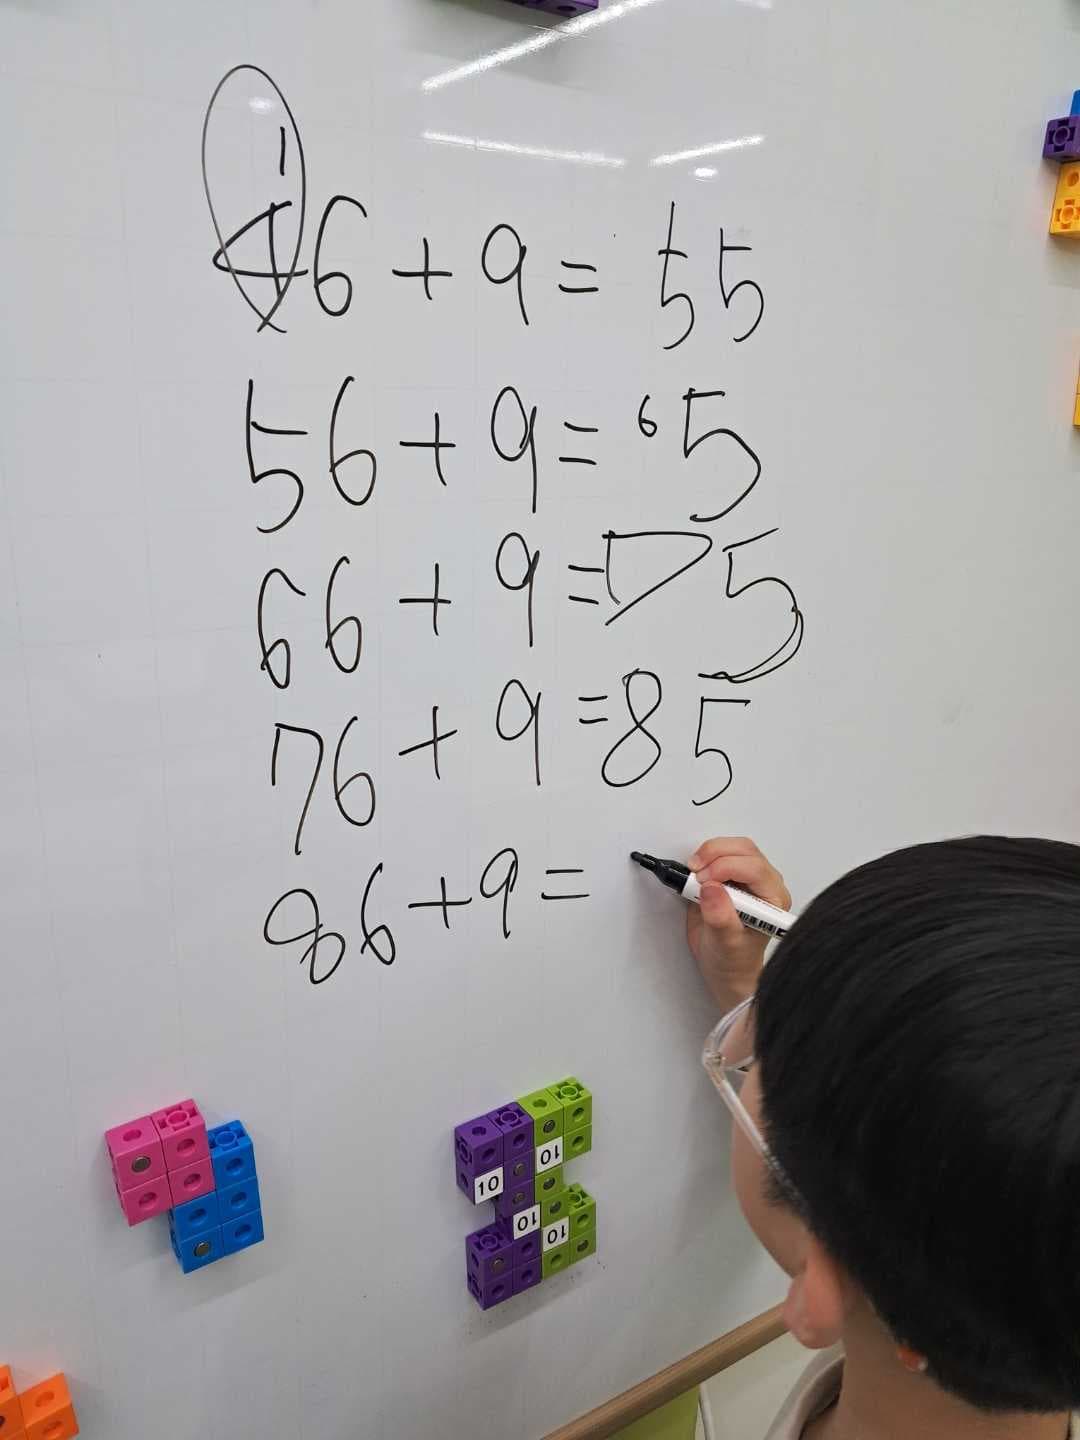 1
46 + 9 = 55
56 + 9 = 65
66 + 9 = 75
76 + 9 = 85
86 + 9 =
10
10
10
10